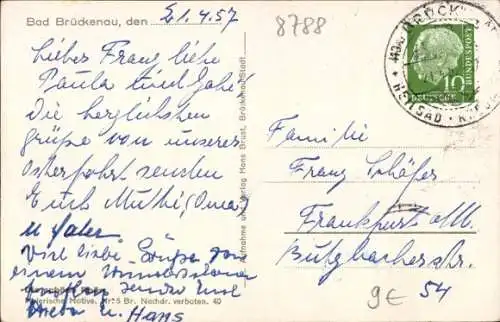 Bad Brückenau, den 21.4.57
8788
Lieber Franz liebe
Paula und Gabi
Die herzlichsten
grüße von unserer
Osterfahrt senden
Euch Mutti (Oma)
u Vater
Viel liebe Grüße von
einem
senden Euch
u. Hans
Aufnahme und Verlag Hans Brust, Brückenau-Stadt
Malerische Motive. Br. Nachdr. verboten. 40
BRÜCK
BAD
10
DEUTSCHE
BUNDESPOST
Familie
Franz Schäfer
Frankfurt a/M.
Butzbacherstr.
54
9€